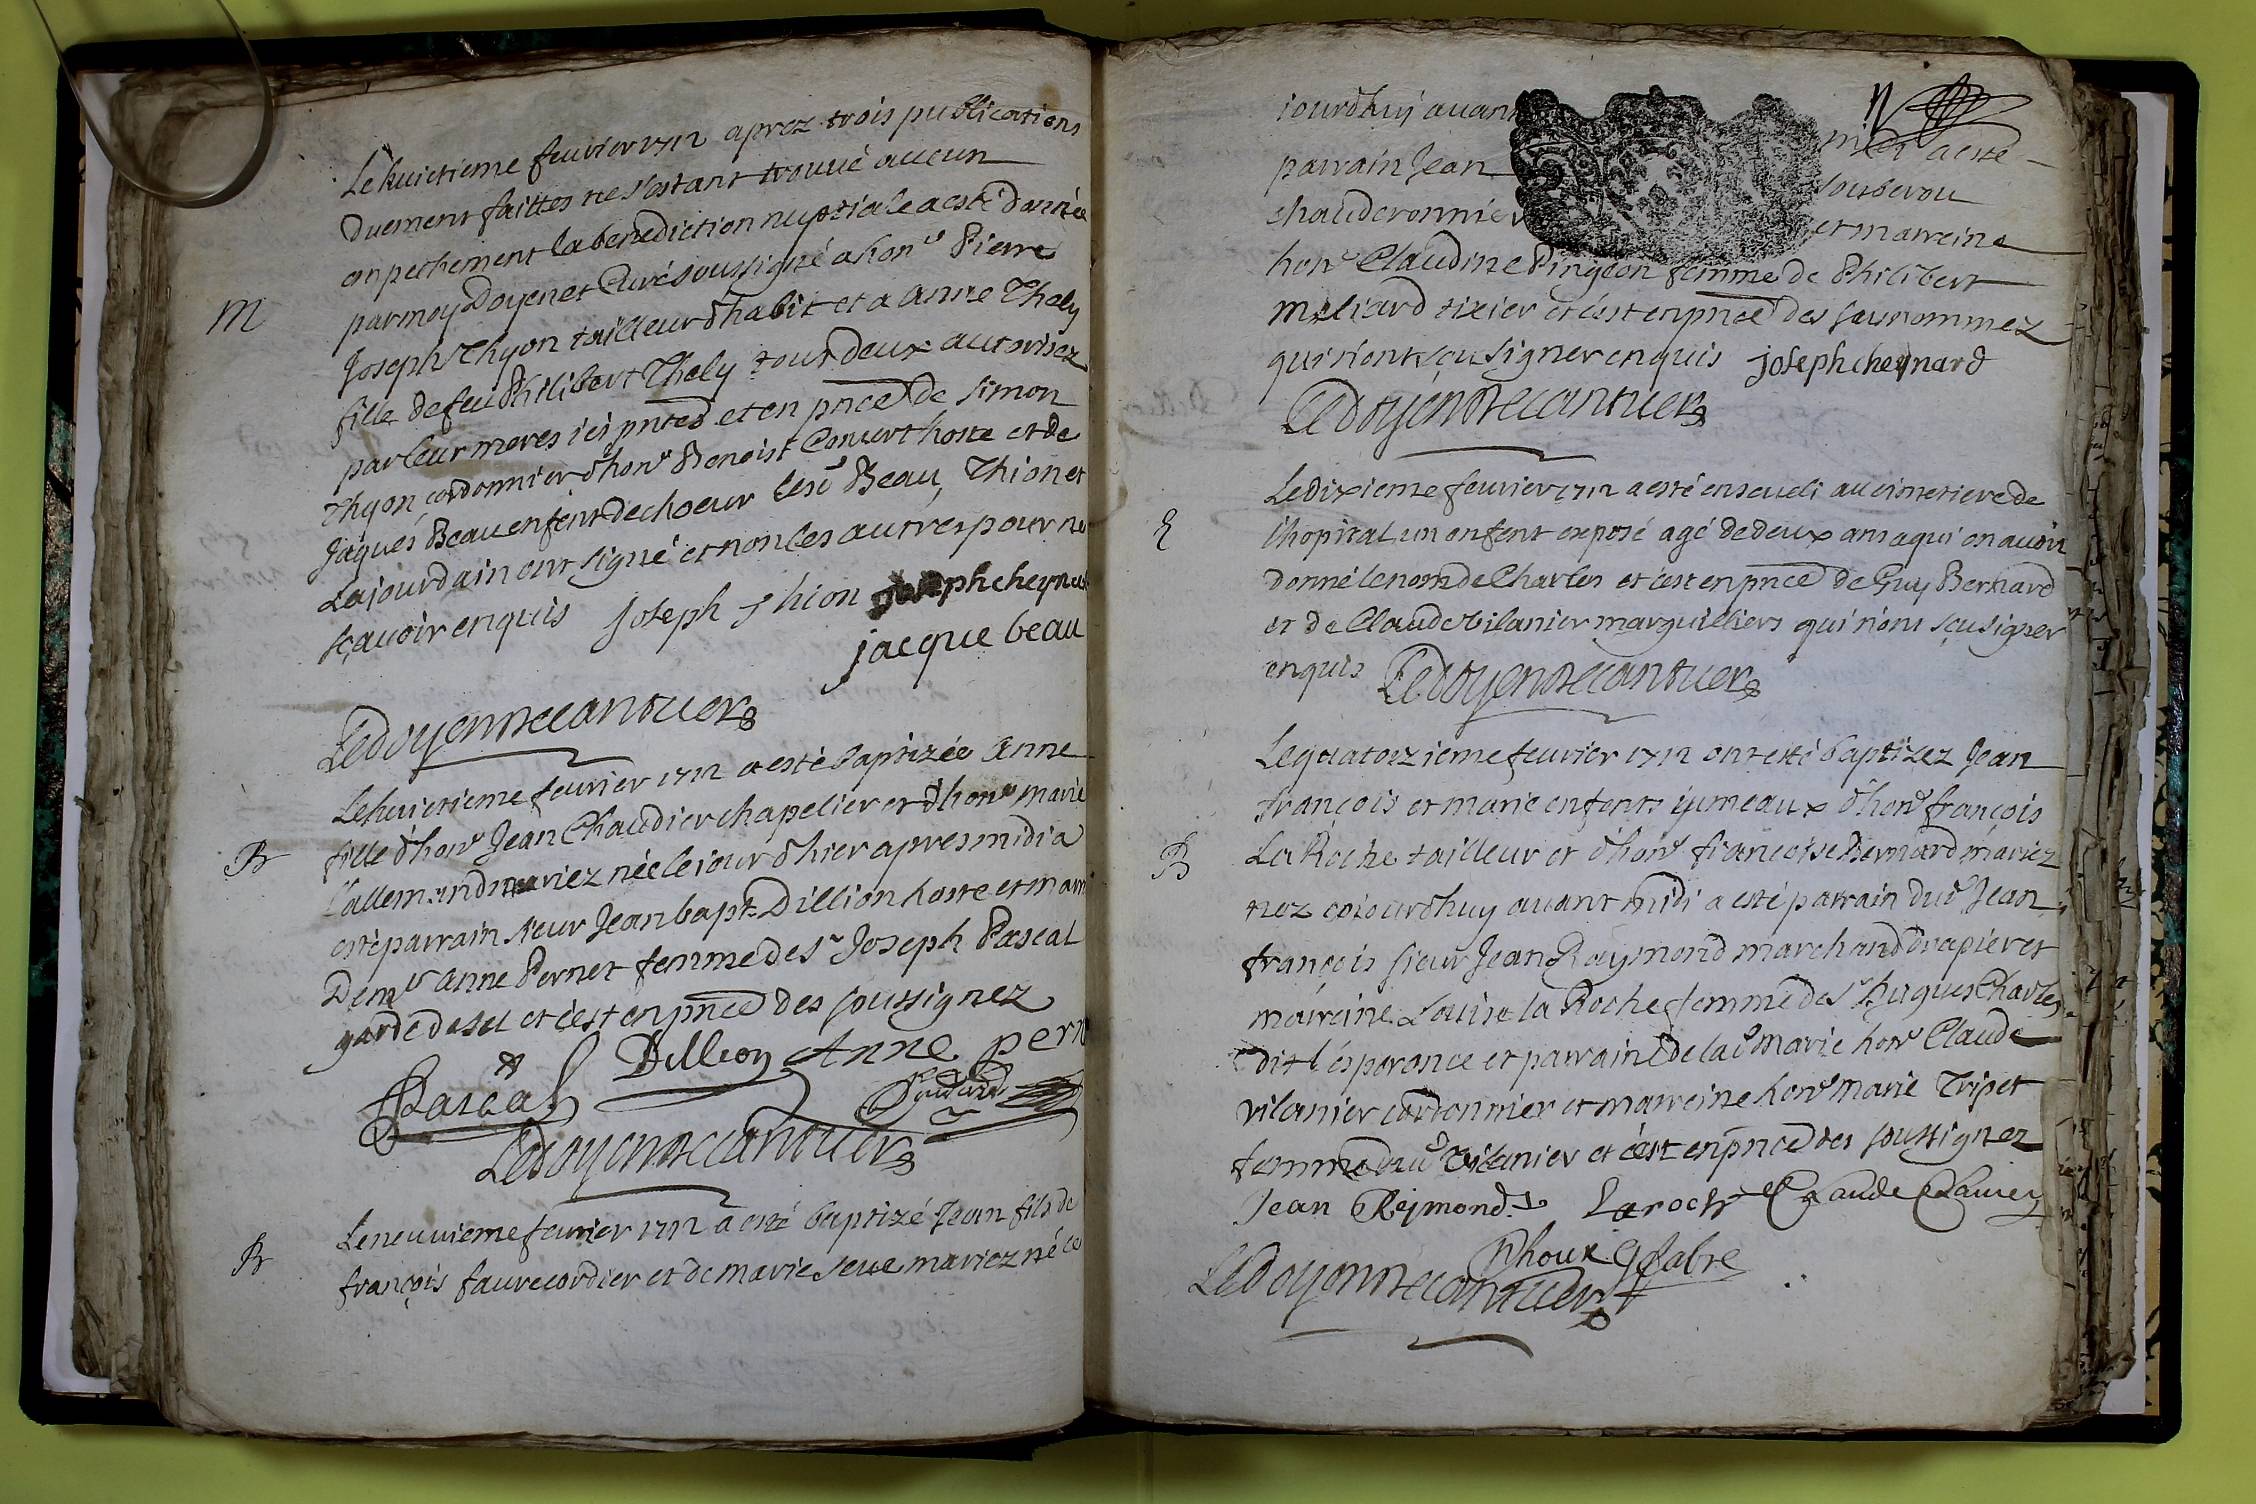 Le huictieme feuvrier 1712 aprez trois publications
Duement faittes ne s'estant trouvé aucun
enpechement la benediction nuptiale a esté donnée
M
par moy Doyen et Curé soussigné a hon^e Pierre
Joseph Thyon tailleur d'habit et a Anne Thely
fille de feu Philibert Thely tout deux autorisez
par leur meres ici pntes et en pnce de Simon
Thyon cordonnier d'hon^e Benoist Convert hoste et de
Jaques Beau enfent de choeur lesd Beau, Thion et
Lajourdain ont signé et non les autres pour ne
sçavoir enquis Joseph Thion josephcheynard
jacque beau
Ledoyen
Le huictieme feuvrier 1712 a esté baptizée Anne
B
fille d'hon^e Jean Chaudier chapelier et d'hon^e Marie
Lallemand mariez née le jour d'hier apres midi a
esté parrain sieur Jean bapt Dillion hoste et marr
Dem^e Anne Pernet femme de s^r Joseph Pascal
garde de sel et c'est en pnce des soussignez
Pascal Dillion Anne pern
Ledoyen
Le neuvieme feuvrier 1712 a esté baptizé Jean fils de
B
françois faure cordier et de marie seve mariez né ce
jourd'huy avant
a esté
parrain Jean
chauderonnier et marreine
hon^e Claudine Pingeon femme de Philibert
Miliard tixier et c'est en pnce des susnommez
qui n'ont sçu signer enquis josephcheynard
Ledoyen
Le dixieme feuvrier 1712 a esté enseveli au cimetiere de
E
l'hopital un enfent exposé agé de deux ans a qui on avoit
donné le nom de Charles et c'est en pnce de Guy Bernard
et de Claude Vilanier marguilliers qui n'ont sçu signer
enquis Ledoyen
Le quatorzieme feuvrier 1712 ont esté baptizez Jean
françois et marie enfents jumeaux d'hon^e françois
B
La Roche tailleur et d'hon^e françoise Bernard mariez
nez cejourd'huy avant midi a esté parrain dud Jean
françois sieur Jean Raymond marchand drapier et
marreine Louise la Roche femme de s^r hugues Charles
dit l'ésperance et parrain de lad Marie hon^e Claude
vilanier cordonnier et marreine hon^e Marie Tripet
femme dud Vilanier et c'est en pnce des soussignez
Jean Reymond Laroche Claude
Phoux Fabre
Ledoyen